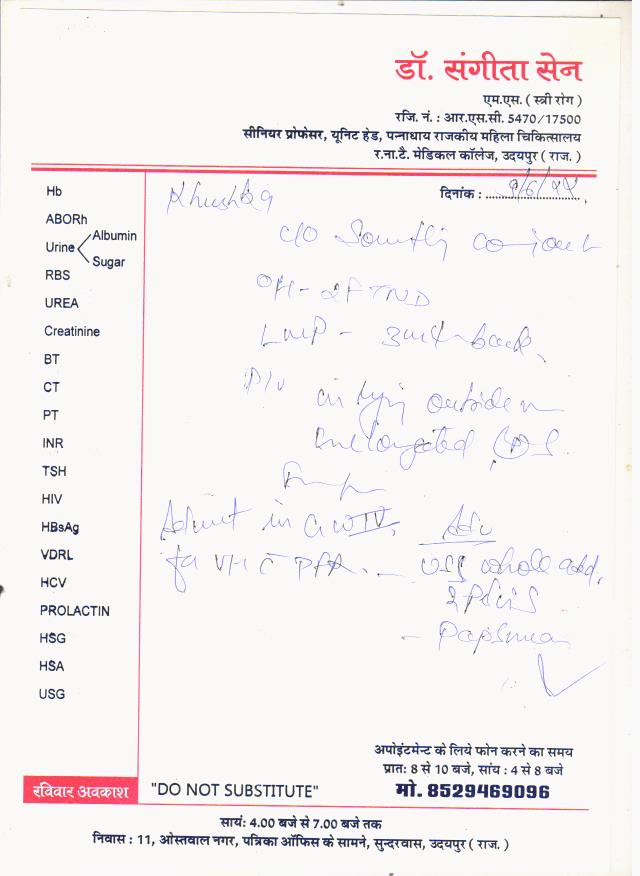 डॉ. संगीता सेन
एम.एस. ( स्त्री रोग )
रजि. नं. : आर.एस.सी. 5470/17500
सीनियर प्रोफेसर, यूनिट हेड, पन्नाधाय राजकीय महिला चिकित्सालय
र.ना.टै. मेडिकल कॉलेज, उदयपुर ( राज. )
दिनांक :
Hb
ABORh
Urine Albumin
Sugar
RBS
UREA
Creatinine
BT
CT
PT
INR
TSH
HIV
HBsAg
VDRL
HCV
PROLACTIN
HSG
HSA
USG
c/o
OH - 2FTND
LMP - back
P/V
outside
Admit in GW IV, Adv
for VH c PFR. - USG whole abd,
- Papsmear
अपोइंटमेन्ट के लिये फोन करने का समय
प्रातः 8 से 10 बजे, सांय : 4 से 8 बजे
मो. 8529469096
रविवार अवकाश
"DO NOT SUBSTITUTE"
सायं: 4.00 बजे से 7.00 बजे तक
निवास : 11, ओस्तवाल नगर, पत्रिका ऑफिस के सामने, सुन्दरवास, उदयपुर ( राज. )